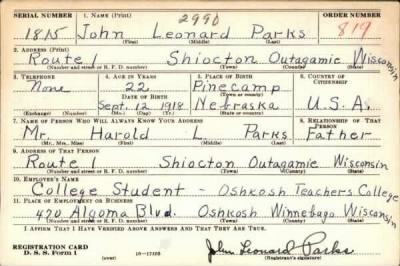 SERIAL NUMBER 1. NAME (Print) 2990 ORDER NUMBER
1815 John Leonard Parks 819
(First) (Middle) (Last)
2. ADDRESS (Print)
Route 1 Shiocton Outagamie Wisconsin
(Number and street or R. F. D. number) (Town) (County) (State)
3. TELEPHONE 4. AGE IN YEARS 5. PLACE OF BIRTH 6. COUNTRY OF CITIZENSHIP
None 22 Pinecamp
DATE OF BIRTH (Town or county)
Sept. 12 1918 Nebraska U.S.A.
(Exchange) (Number) (Mo.) (Day) (Yr.) (State or country)
7. NAME OF PERSON WHO WILL ALWAYS KNOW YOUR ADDRESS 8. RELATIONSHIP OF THAT PERSON
Mr. Harold L. Parks Father
(Mr., Mrs., Miss) (First) (Middle) (Last)
9. ADDRESS OF THAT PERSON
Route 1 Shiocton Outagamie Wisconsin
(Number and street or R. F. D. number) (Town) (County) (State)
10. EMPLOYER'S NAME
College Student - Oshkosh Teachers College
11. PLACE OF EMPLOYMENT OR BUSINESS
420 Algoma Blvd. Oshkosh Winnebago Wisconsin
(Number and street or R. F. D. number) (Town) (County) (State)
I AFFIRM THAT I HAVE VERIFIED ABOVE ANSWERS AND THAT THEY ARE TRUE.
REGISTRATION CARD John Leonard Parks
D. S. S. Form 1 (over) 16-17105 (Registrant's signature)